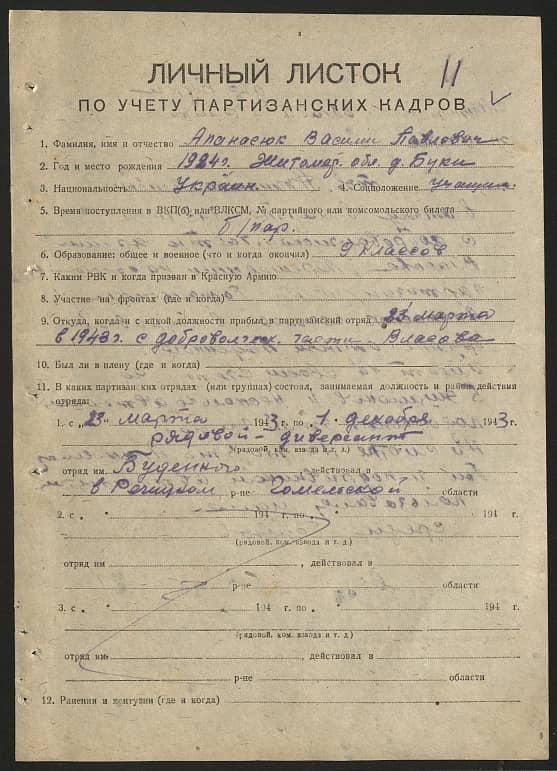 11
ЛИЧНЫЙ ЛИСТОК
ПО УЧЕТУ ПАРТИЗАНСКИХ КАДРОВ
1. Фамилия, имя и отчество Апанасюк Василий Павлович
2. Год и место рождения 1924 г. Житомир. обл. д. Буки
3. Национальность Украин. 4. Соцположение учащийся
5. Время поступления в ВКП(б) или ВЛКСМ, № партийного или комсомольского билета
б/пар.
6. Образование: общее и военное (что и когда окончил) 9 классов
7. Каким РВК и когда призван в Красную Армию
8. Участие на фронтах (где и когда)
9. Откуда, когда и с какой должности прибыл в партизанский отряд 23 марта
в 1943 г. с доброволческ. части Власова
10. Был ли в плену (где и когда)
11. В каких партизанских отрядах (или группах) состоял, занимаемая должность и район действия
отряда:
1. с „23“ марта 1943 г. по 1 декабря 1943 г.
рядовой - диверсант
(рядовой, ком. взвода и т. д.)
отряд им. Буденного действовал в
в Речицком р-не Гомельской области
2. с 194 г. по 194 г.
(рядовой, ком. взвода и т. д.)
отряд им , действовал в
р-не области
3. с 194 г. по 194 г.
(рядовой, ком. взвода и т. д.)
отряд им , действовал в
р-не области
12. Ранения и контузии (где и когда)